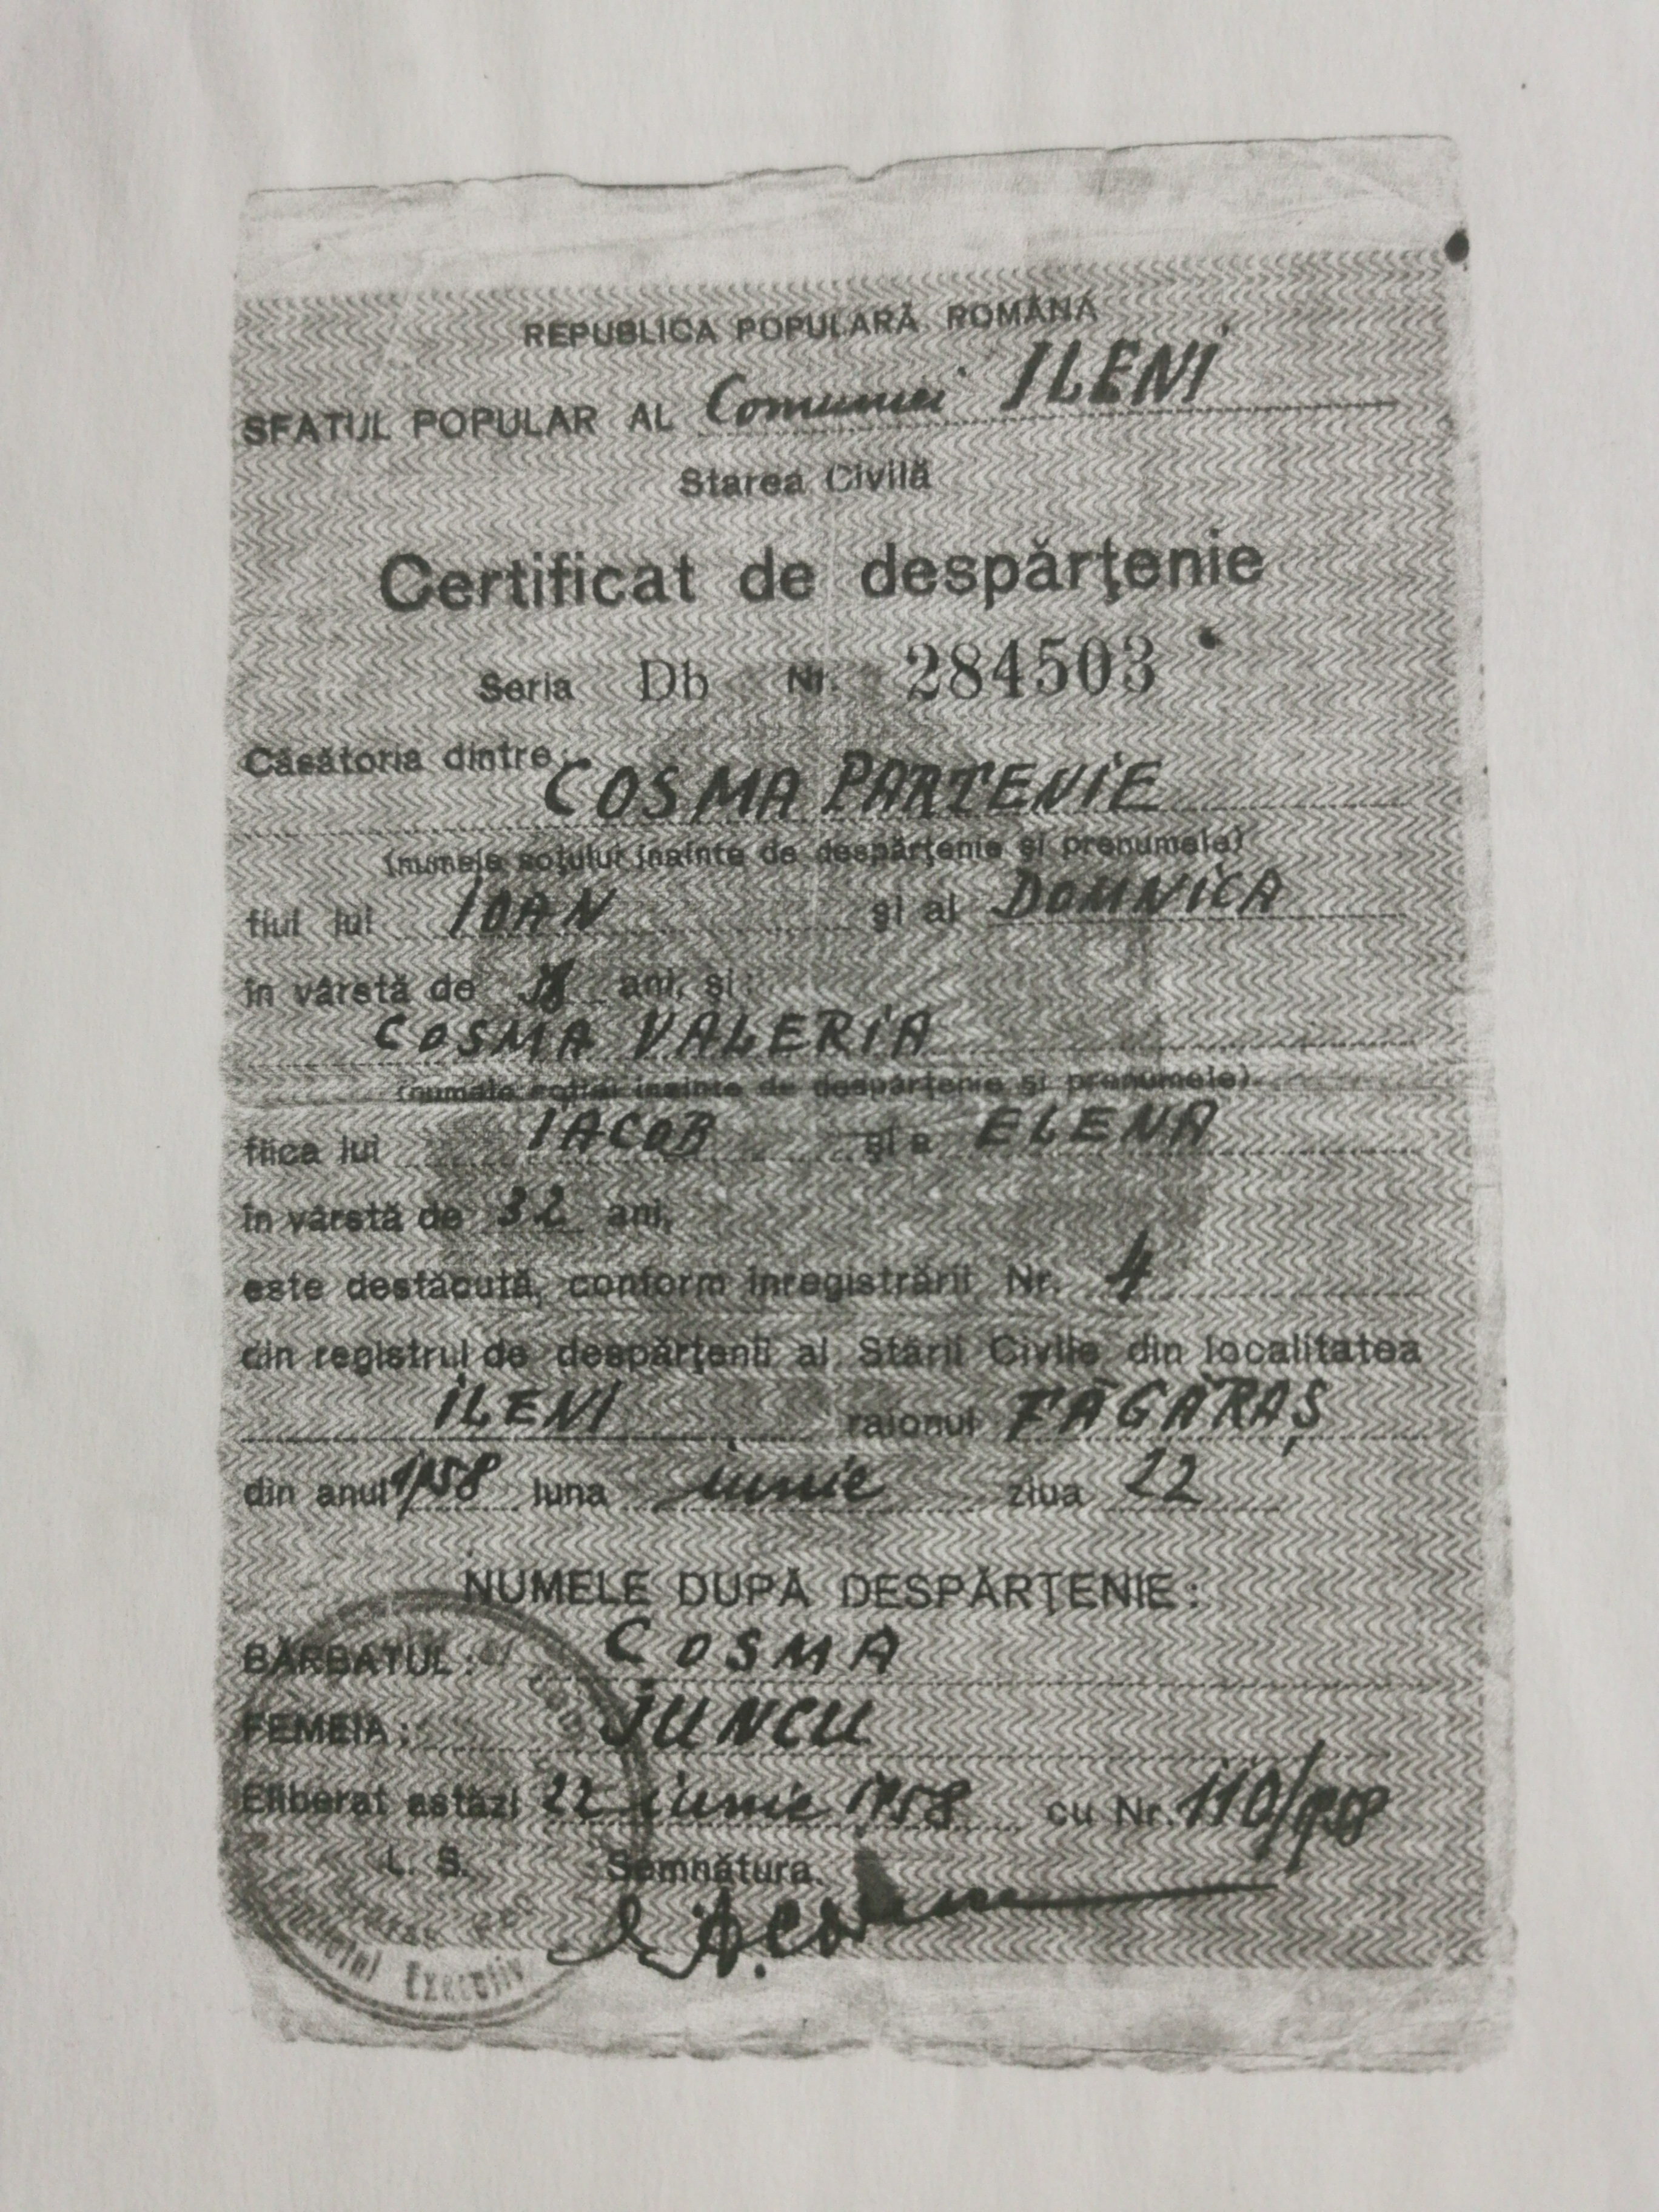 REPUBLICA POPULARĂ ROMÂNĂ
SFATUL POPULAR AL Comunei ILENI
Starea Civilă
Certificat de despărţenie
Seria Db Nr. 284503
Căsătoria dintre:
COSMA PARTENIE
(numele soţului înainte de despărţenie şi prenumele)
fiul lui IOAN şi al DOMNICA
în vârstă de ani, şi:
COSMA VALERIA
(numele soţiei înainte de despărţenie şi prenumele)
fiica lui IACOB şi a ELENA
în vârstă de 32 ani,
este desfăcută, conform înregistrării Nr. 4
din registrul de despărţenii al Stării Civile din localitatea
ILENI raionul FĂGĂRAŞ
din anul 1958 luna iunie ziua 22
NUMELE DUPĂ DESPĂRŢENIE:
BĂRBATUL: COSMA
FEMEIA: JUNCU
Eliberat astăzi 22 iunie 1958 cu Nr. 110/1958
L. S. Semnătura.
Executiv